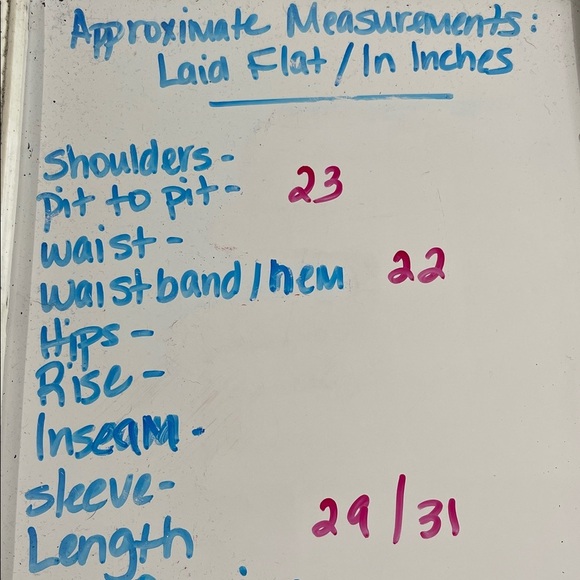 Approximate Measurements:
Laid Flat / In Inches
Shoulders -
pit to pit - 23
waist -
waistband/hem 22
Hips -
Rise -
Inseam -
sleeve -
Length 29/31